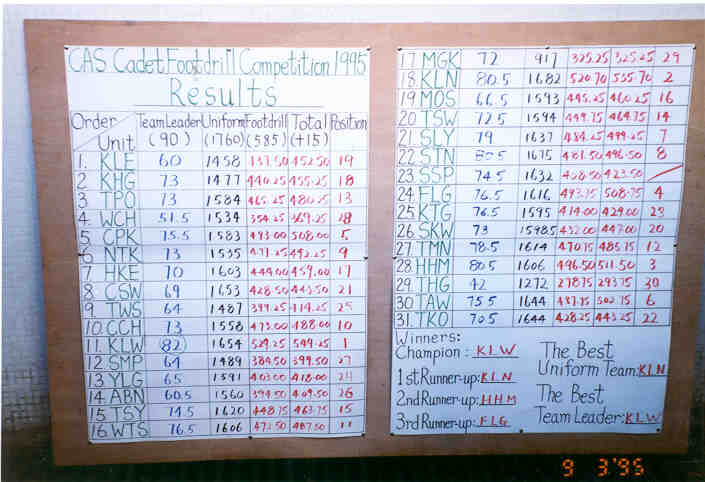 CAS Cadet Footdrill Competition 1995
Results
Order Unit Team Leader (90) Uniform (1760) Footdrill (585) Total (+15) Position
1. KLE 60 1458 437.50 452.50 19
2 KHG 73 1477 440.25 455.25 18
3 TPO 73 1584 465.25 480.25 13
4. WCH 51.5 1534 354.25 369.25
5 CPK 75.5 1583 493.00 508.00 5
6 NTK 73 1535 492.25 9
7 HKE 70 1603 444.00 459.00 17
8 CSW 69 1653 428.50 443.50 21
9 TWS 64 1487 399.25 414.25 25
10. CCH 73 1558 473.00 488.00 10
11. KLW 82 1654 534.25 549.25 1
12 SMP 64 1489 384.50 399.50 27
13 YLG 65 1591 403.00 418.00 24
14. ABN 60.5 1560 394.50 409.50 26
15 TSY 74.5 1620 448.75 463.75 15
16 WTS 76.5 1606 487.50 11
17 MGK 72 917 325.25 29
18 KLN 80.5 1682 520.70 535.70 2
19 MOS 66.5 1593 445.25 460.25 16
20 TSW 72.5 1594 449.75 464.75 14
21. SLY 79 1637 484.25 499.25 7
22. STN 80.5 1675 481.50 496.50 8
23 SSP 74.5 1632 408.50 423.50
24 FLG 76.5 1616 493.75 508.75 4
25 KTG 76.5 1595 414.00 429.00 23
26 SKW 73 1598.5 432.00 447.00 20
27. TMN 78.5 1614 470.75 485.75 12
28. HHM 80.5 1606 496.50 511.50 3
29. THG 42 1272 278.75 293.75 30
30 TAW 75.5 1644 487.75 502.75 6
31. TKO 70.5 1644 428.25 443.25 22
Winners:
Champion: KLW
1st Runner-up: KLN
2nd Runner-up: HHM
3rd Runner-up: FLG
The Best
Uniform Team: KLN
The Best
Team Leader: KLW
9 3.'95